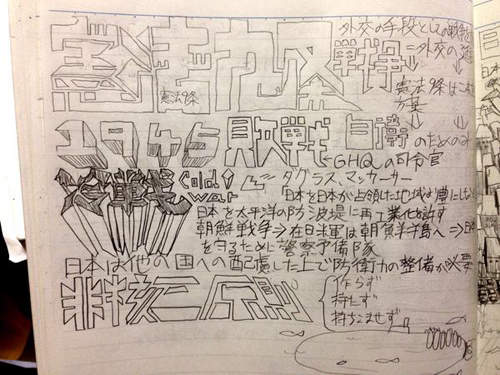 憲法九条
憲法九条
戦争
外交の手段としての戦争
外交の
憲法九条は
1945 敗戦 自衛のための
GHQの司令官
ダグラス、マッカーサー
冷戦 Cold war
日本を太平洋の防波堤に再工業化を許す
朝鮮戦争⇒在日米軍は朝鮮半島へ⇒
を守るために警察予備隊
日本は他の国への配慮した上で防衛力の整備が必要
非核三原則
作らず
持たず
持ちこませず